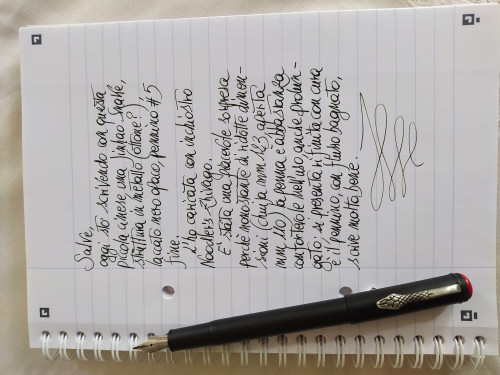 Salve,
oggi sto scrivendo con questa
piccola cinese una Jinhao Snake,
struttura in metallo (ottone?),
laccato nero opaco pennino #5
fine.
L'ho caricata con inchiostro
Noodler's
È stata una piacevole sorpresa
perché nonostante di ridotte dimen-
sioni (chiusa mm 123 aperta
mm la penna è abbastanza
confortevole nell'uso anche prolun-
gato; si presenta rifinita con cura
e il pennino con flusso bagnato,
scrive molto bene.